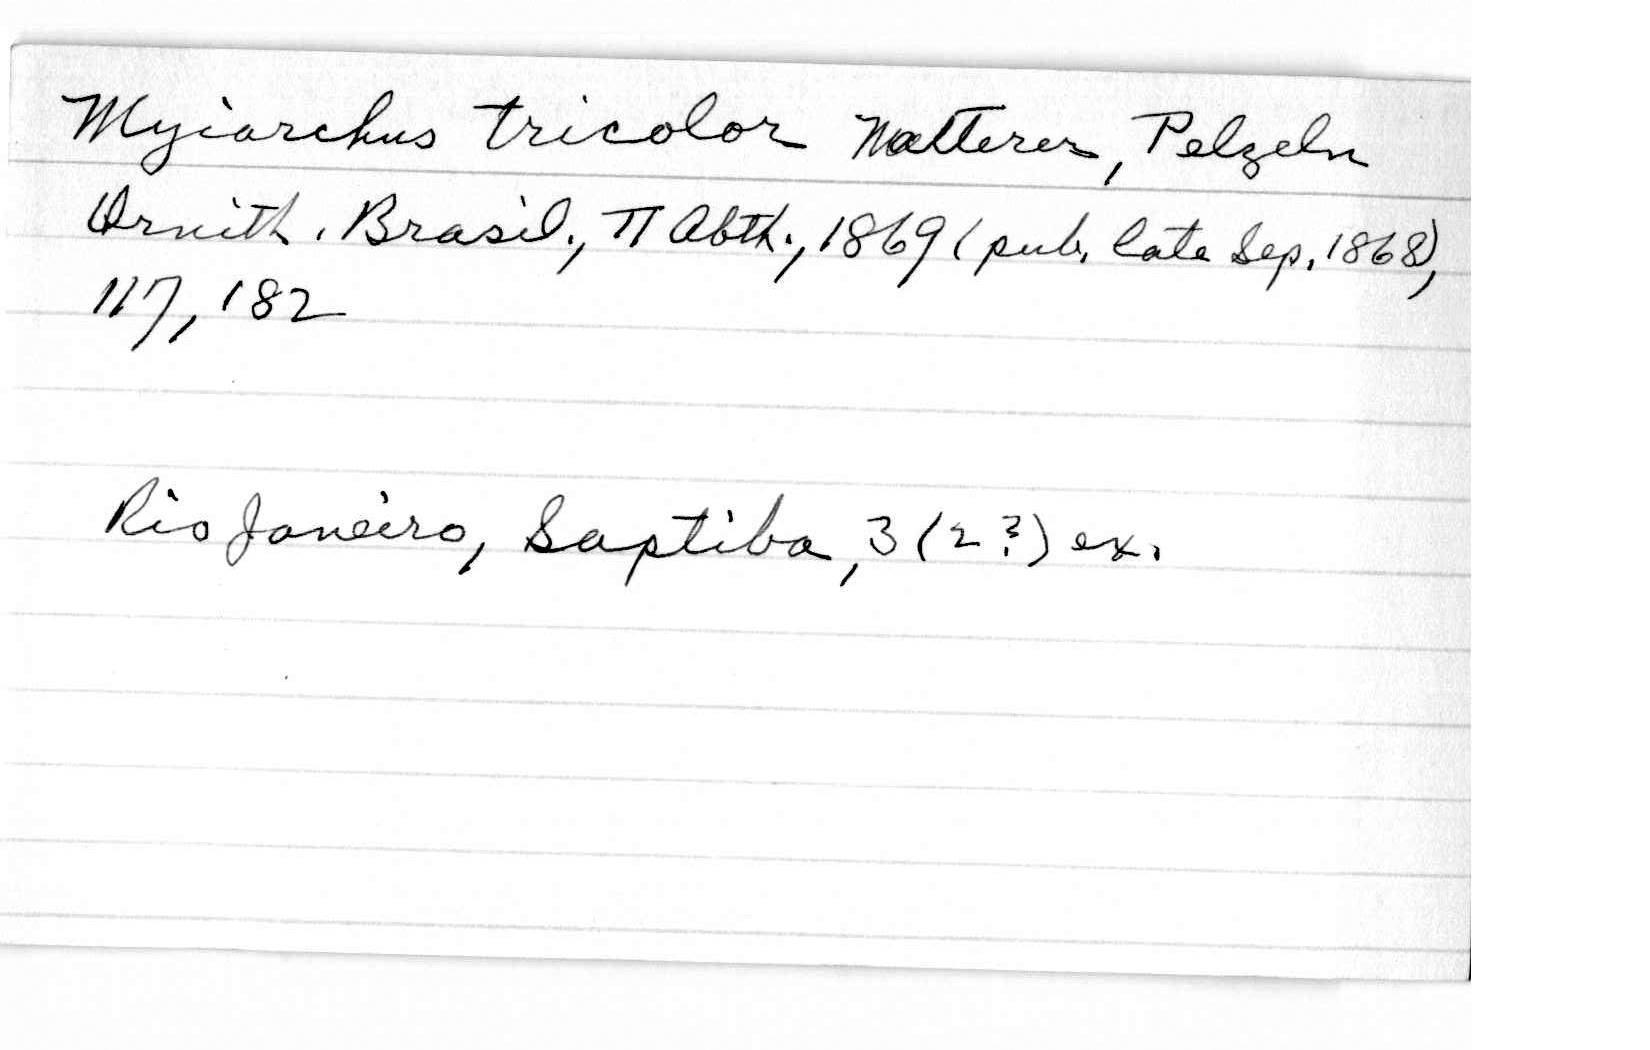 Myiarchus tricolor Natterer, Pelzeln
Ornith. Brasil., II Abth., 1869 (pub. late Sep. 1868),
117, 182
Rio Janeiro, Saptiba, 3 (2 ?) ex.